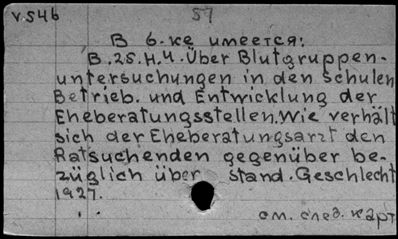 v.546 57
В б-ке имеется:
B.25.H.4. Über Blutgruppen-
untersuchungen in den Schulen
Betrieb. und Entwicklung der
Eheberatungsstellen. Wie verhält
sich der Eheberatungsarzt den
Ratsuchenden gegenüber be-
züglich über stand. Geschlecht
1927.
см. след. карт